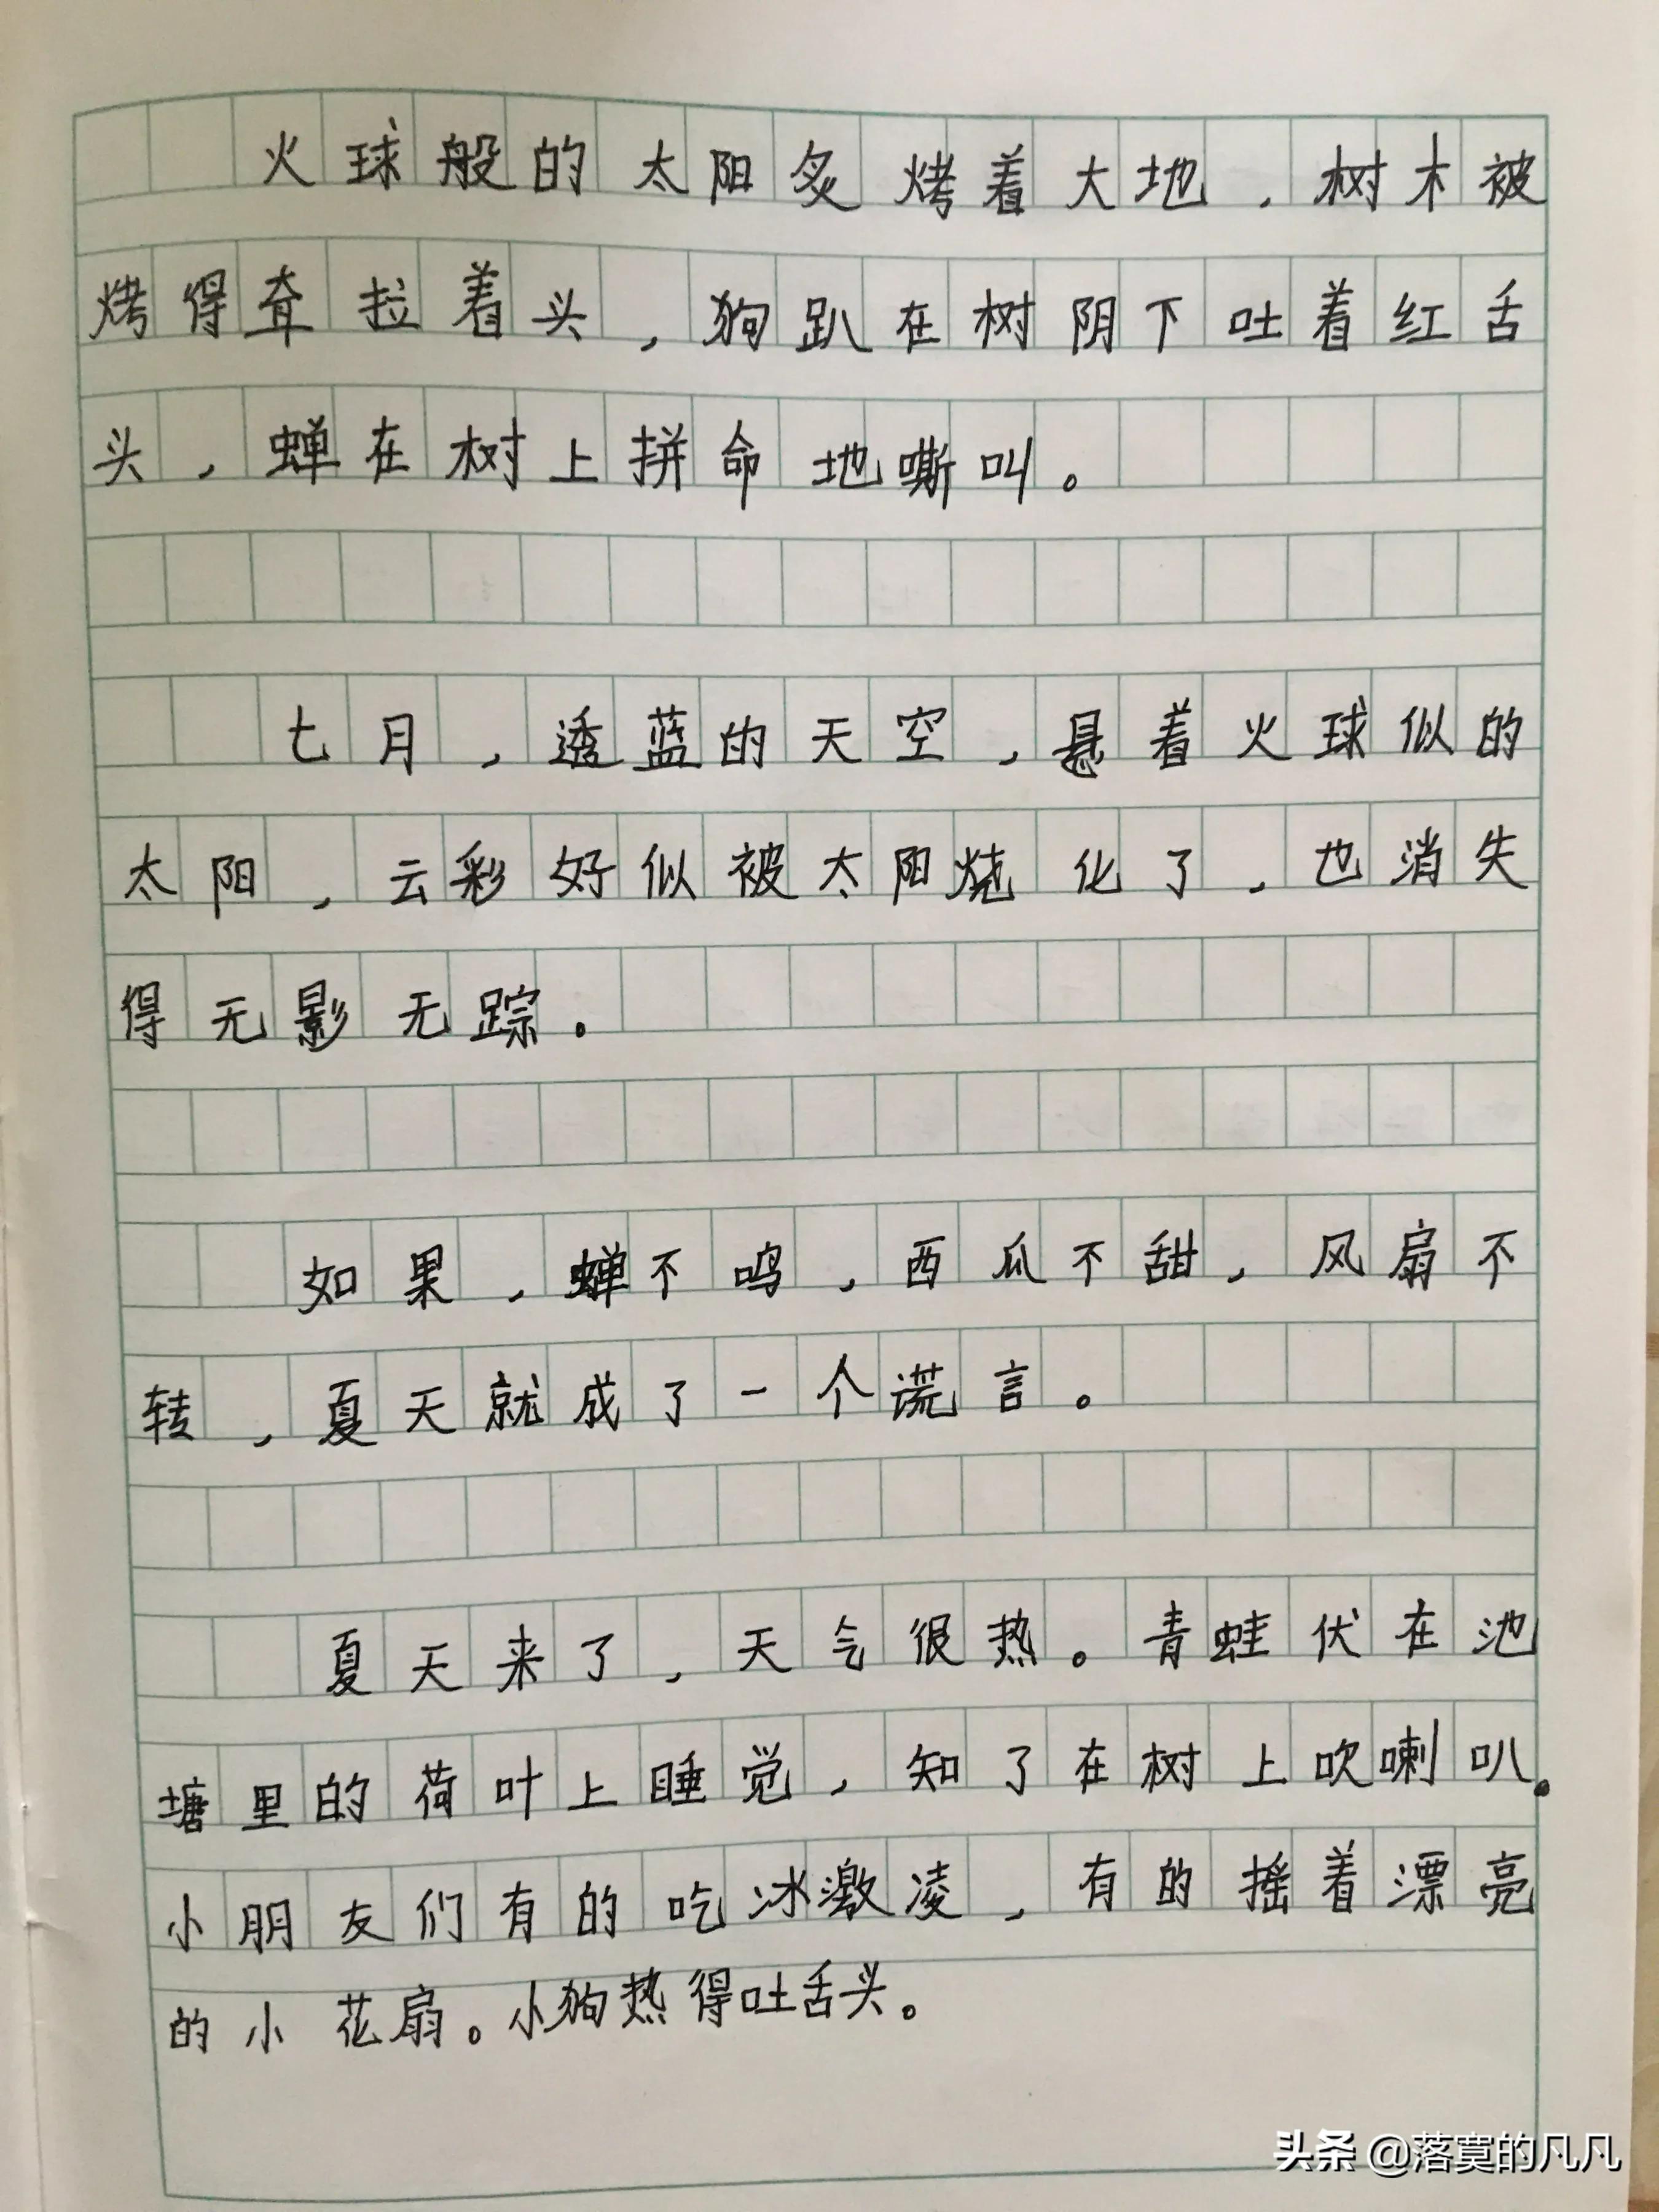 火球般的太阳炙烤着大地，树木被
烤得耷拉着头，狗趴在树阴下吐着红舌
头，蝉在树上拼命地嘶叫。
七月，透蓝的天空，悬着火球似的
太阳，云彩好似被太阳烧化了，也消失
得无影无踪。
如果，蝉不鸣，西瓜不甜，风扇不
转，夏天就成了一个谎言。
夏天来了，天气很热。青蛙伏在池
塘里的荷叶上睡觉，知了在树上吹喇叭。
小朋友们有的吃冰激凌，有的摇着漂亮
的小花扇。小狗热得吐舌头。
头条 @落寞的凡凡